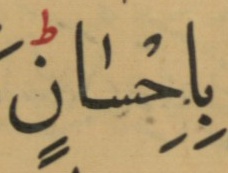 بِاِحْسٰانٍؕ